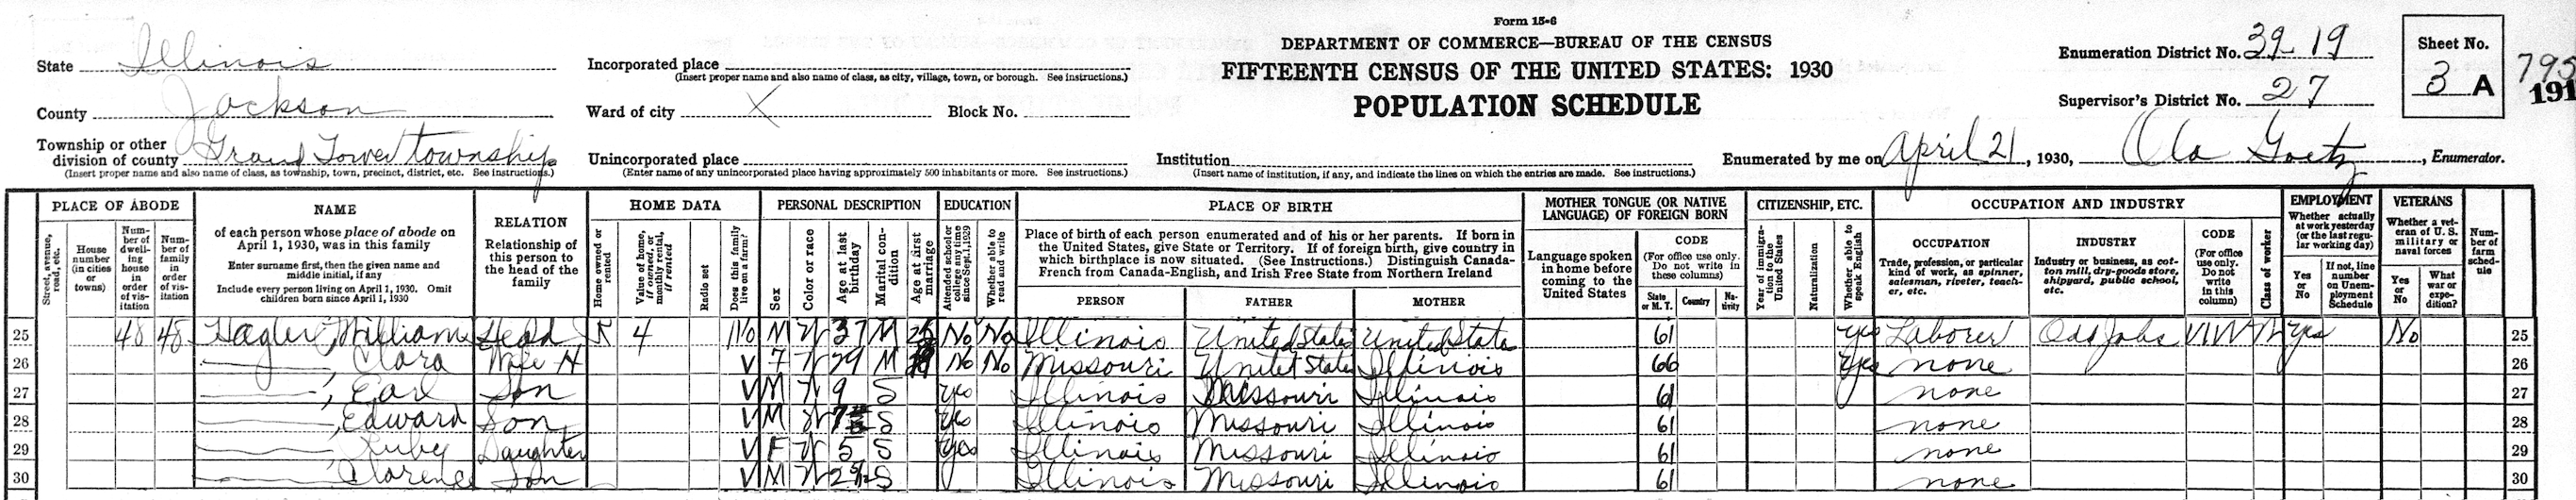 Form 15-6
DEPARTMENT OF COMMERCE—BUREAU OF THE CENSUS
FIFTEENTH CENSUS OF THE UNITED STATES: 1930
POPULATION SCHEDULE
State Illinois
County Jackson
Township or other division of county Grand Tower township
(Insert proper name and also name of class, as township, town, precinct, district, etc. See instructions.)
Incorporated place
(Insert proper name and also name of class, as city, village, town, or borough. See instructions.)
Ward of city X Block No.
Unincorporated place
(Enter name of any unincorporated place having approximately 500 inhabitants or more. See instructions.)
Institution
(Insert name of institution, if any, and indicate the lines on which the entries are made. See instructions.)
Enumeration District No. 39-19
Supervisor's District No. 27
Sheet No.
3 A
795
191
Enumerated by me on April 21, 1930, Ola Goetz, Enumerator.
PLACE OF ABODE
Street, avenue, road, etc.
House number (in cities or towns)
Number of dwelling house in order of visitation
Number of family in order of visitation
NAME
of each person whose place of abode on April 1, 1930, was in this family
Enter surname first, then the given name and middle initial, if any
Include every person living on April 1, 1930. Omit children born since April 1, 1930
RELATION
Relationship of this person to the head of the family
HOME DATA
Home owned or rented
Value of home, if owned, or monthly rental, if rented
Radio set
Does this family live on a farm?
PERSONAL DESCRIPTION
Sex
Color or race
Age at last birthday
Marital condition
Age at first marriage
EDUCATION
Attended school or college any time since Sept. 1, 1929
Whether able to read and write
PLACE OF BIRTH
Place of birth of each person enumerated and of his or her parents. If born in the United States, give State or Territory. If of foreign birth, give country in which birthplace is now situated. (See Instructions.) Distinguish Canada-French from Canada-English, and Irish Free State from Northern Ireland
PERSON FATHER MOTHER
MOTHER TONGUE (OR NATIVE LANGUAGE) OF FOREIGN BORN
Language spoken in home before coming to the United States
CODE
(For office use only. Do not write in these columns)
State or M. T. Country Nativity
CITIZENSHIP, ETC.
Year of immigration to the United States
Naturalization
Whether able to speak English
OCCUPATION AND INDUSTRY
OCCUPATION
Trade, profession, or particular kind of work, as spinner, salesman, riveter, teacher, etc.
INDUSTRY
Industry or business, as cotton mill, dry-goods store, shipyard, public school, etc.
CODE
(For office use only. Do not write in this column)
Class of worker
EMPLOYMENT
Whether actually at work yesterday (or the last regular working day)
Yes or No
If not, line number on Unemployment Schedule
VETERANS
Whether a veteran of U. S. military or naval forces
Yes or No
What war or expedition?
Number of farm schedule
25 48 48 Hagler, William Head R 4 No M W 37 M No No Illinois United States United States 61 yes Laborer Odd Jobs W yes No 25
26 —, Clara Wife H V F W 29 M No No Missouri United States Illinois 66 yes none 26
27 —, Earl Son V M W 9 S yes Illinois Missouri Illinois 61 none 27
28 —, Edward Son V M W 7 S yes Illinois Missouri Illinois 61 none 28
29 —, Ruby Daughter V F W 5 S yes Illinois Missouri Illinois 61 none 29
30 —, Clarence Son V M W 2 S Illinois Missouri Illinois 61 none 30